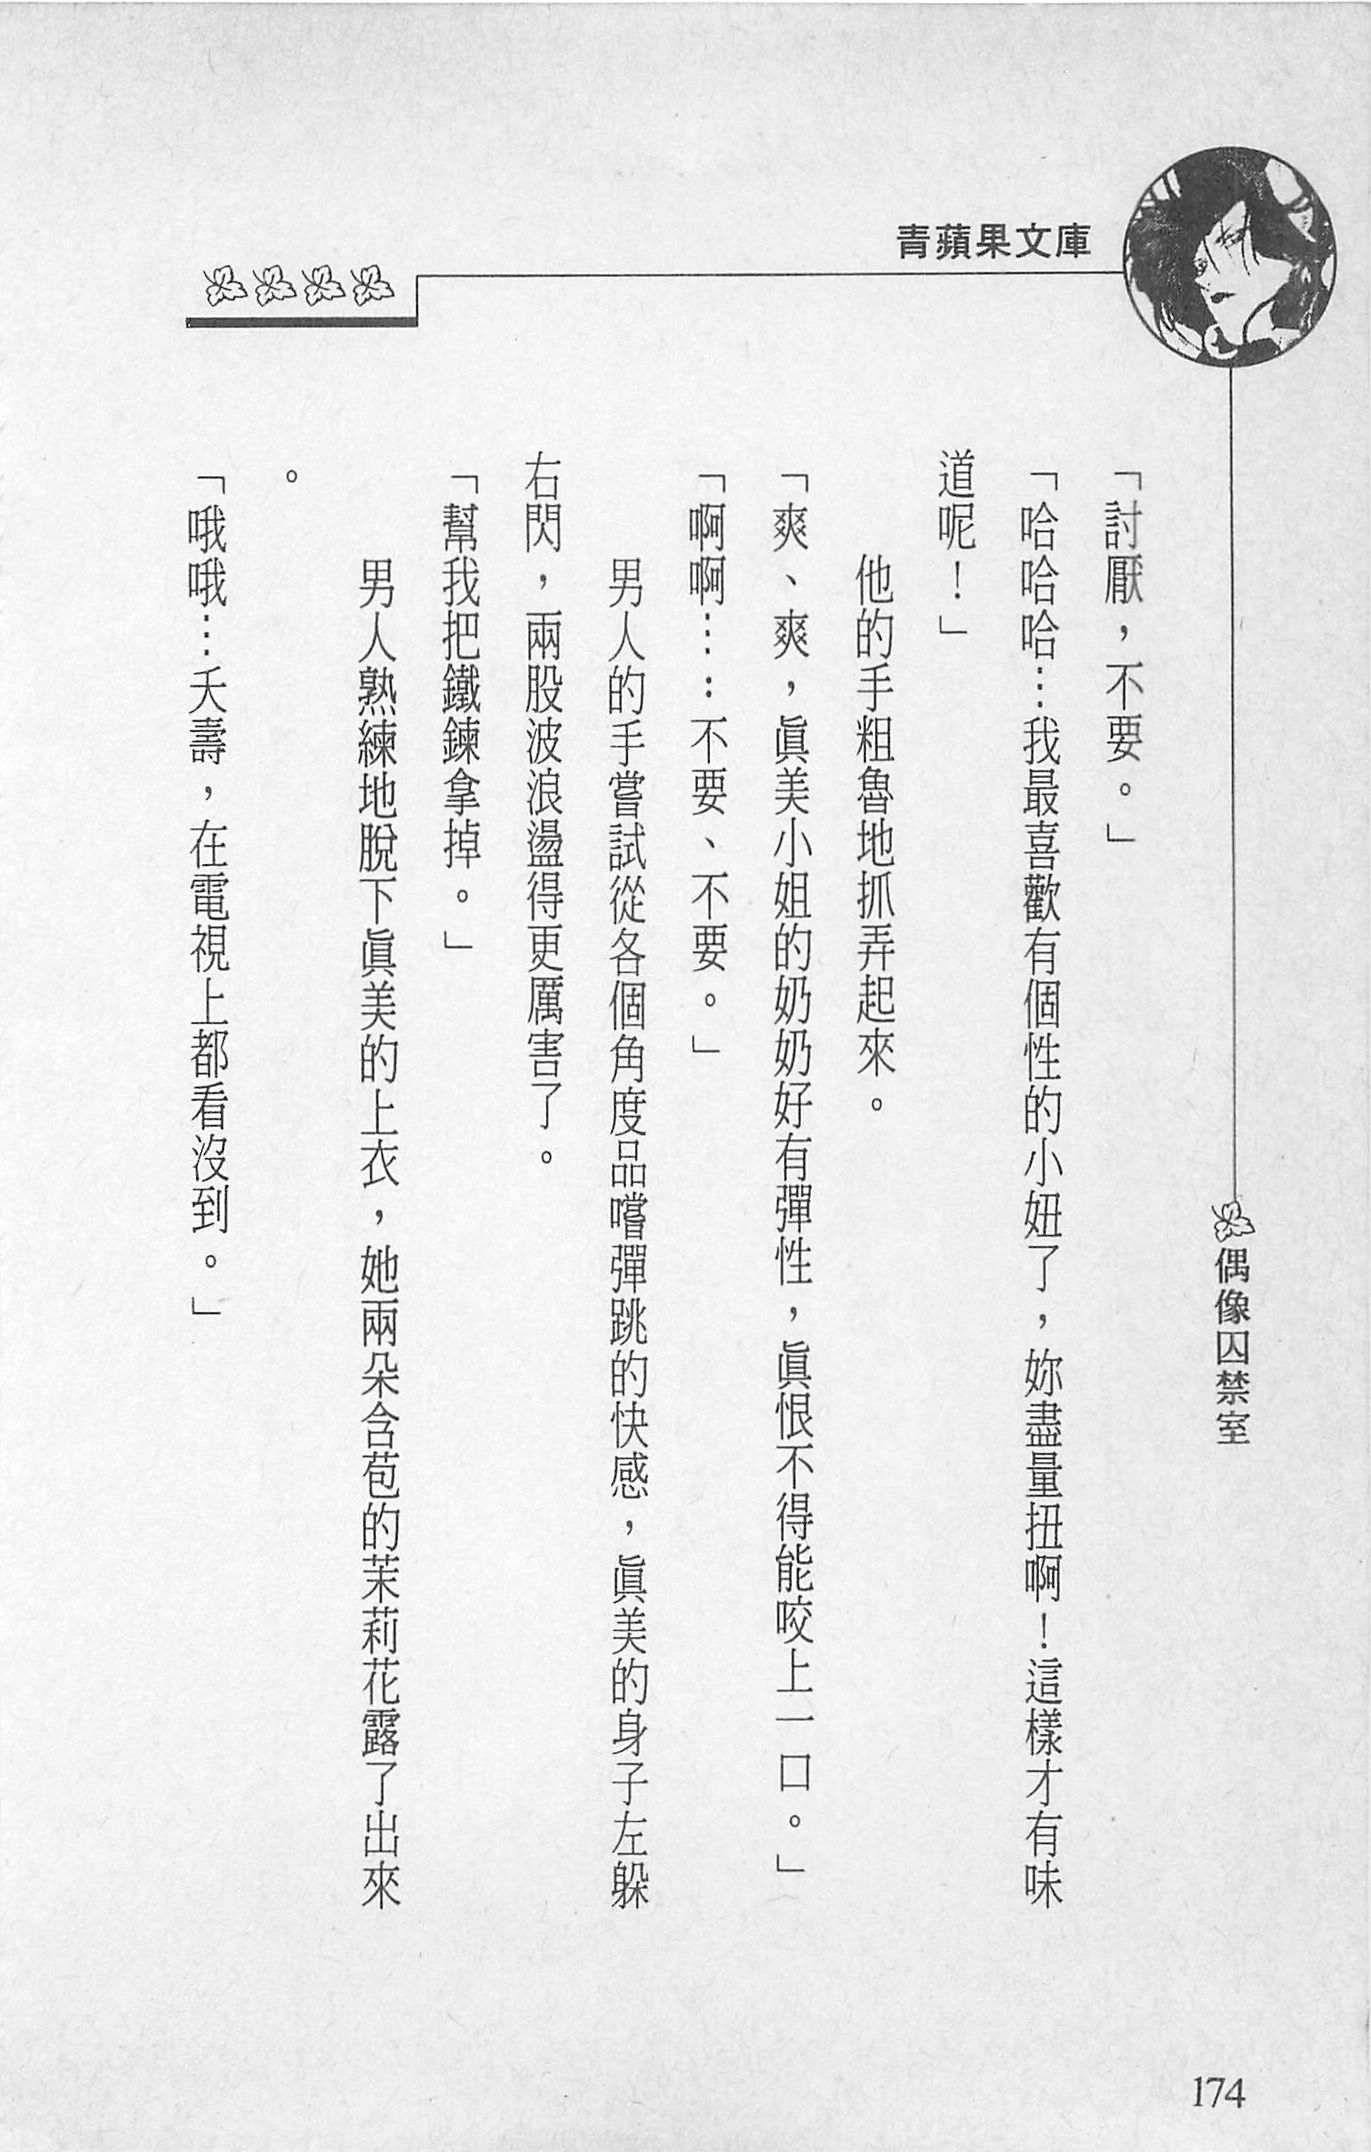 青蘋果文庫
偶像囚禁室
「討厭，不要。」
「哈哈哈…我最喜歡有個性的小妞了，妳盡量扭啊！這樣才有味
道呢！」
他的手粗魯地抓弄起來。
「爽、爽，眞美小姐的奶奶好有彈性，眞恨不得能咬上一口。」
「啊啊…：不要、不要。」
男人的手嘗試從各個角度品嚐彈跳的快感，眞美的身子左躲
右閃，兩股波浪盪得更厲害了。
「幫我把鐵鍊拿掉。」
男人熟練地脫下眞美的上衣，她兩朵含苞的茉莉花露了出來
。
「哦哦…夭壽，在電視上都看沒到。」
174